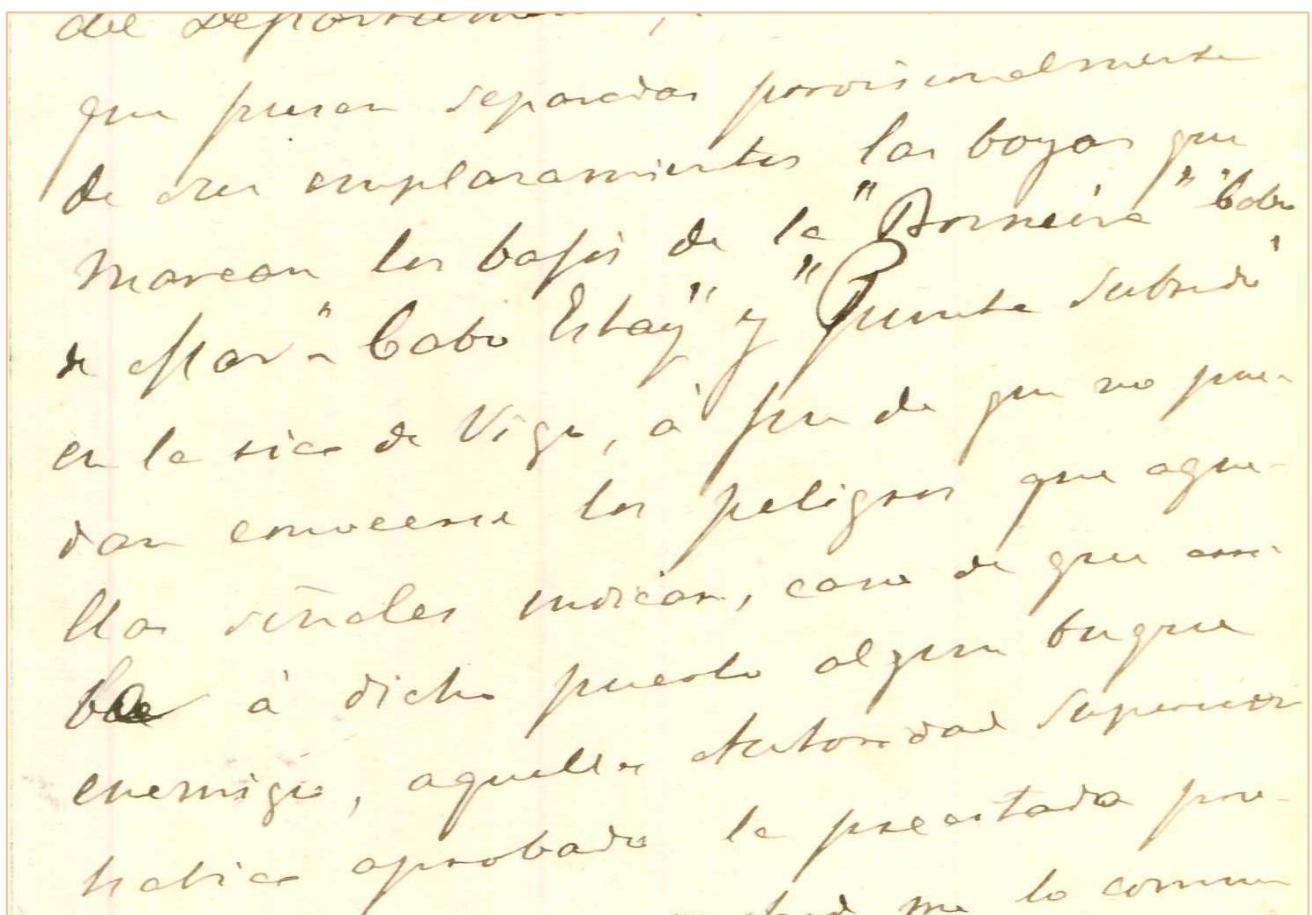 del Departamento,
que fueran separadas provisionalmente
de sus emplazamientos las boyas que
marcan los bajos de la "Borneira" "Cabo
de Mar" "Cabo Estay" y "Punta Subrido"
en la ria de Vigo, á fin de que no pue-
dan conocerse los peligros que aque-
llas señales indican, caso de que arri-
base á dicho puerto algun buque
enemigo, aquella Autoridad Superior
habia aprobado la precitada pro-
me lo comun